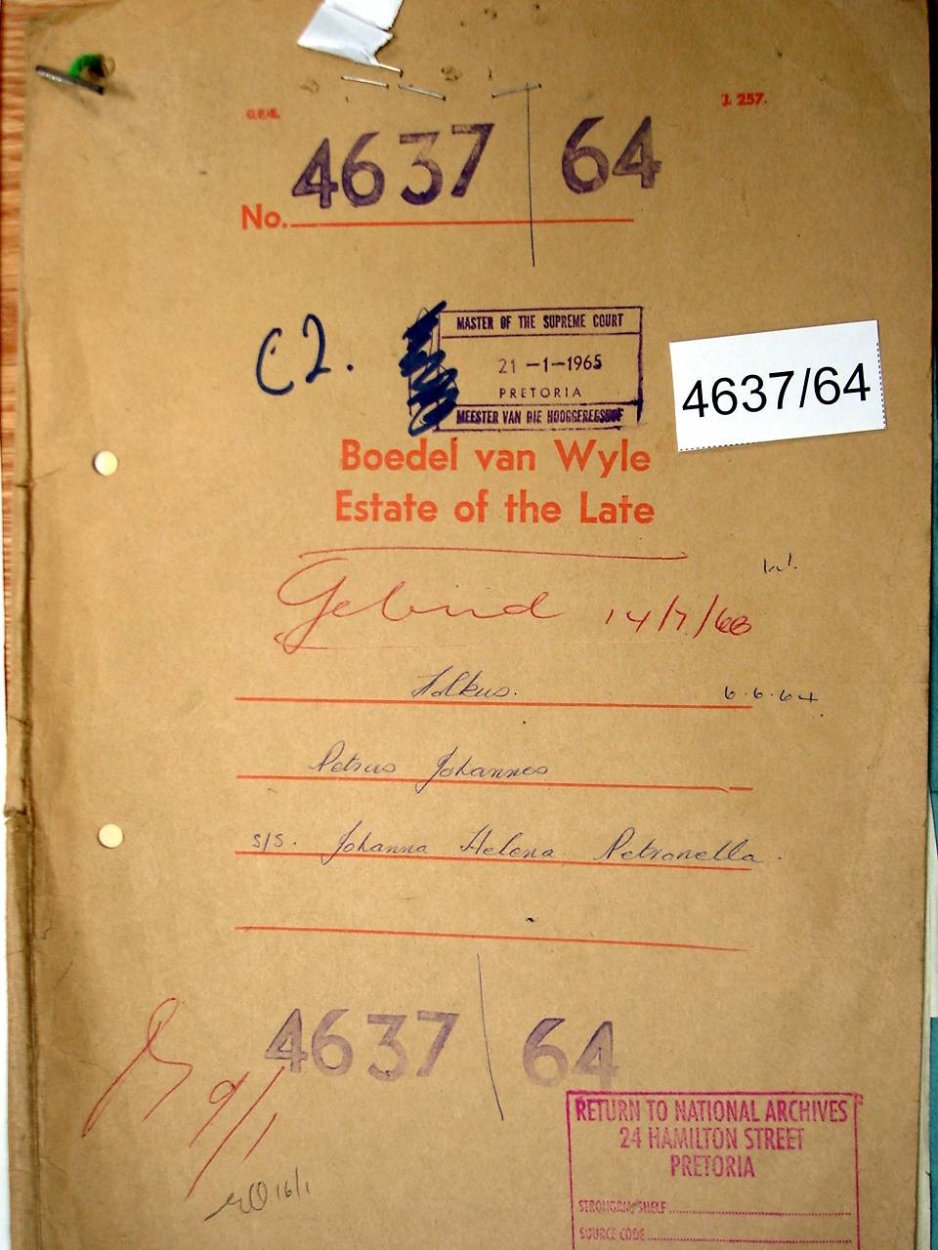 G.P.-S.
J. 257.
4637 64
No.
C2.
MASTER OF THE SUPREME COURT
21 -1-1965
PRETORIA
MEESTER VAN DIE HOOGGEREGSHOF
4637/64
Boedel van Wyle
Estate of the Late
14/7/68
6.6.64
Petrus Johannes
s/s. Johanna Helena Petronella.
4637 64
9/1
16/1
RETURN TO NATIONAL ARCHIVES
24 HAMILTON STREET
PRETORIA
STRONGRM/SHELF
SOURCE CODE